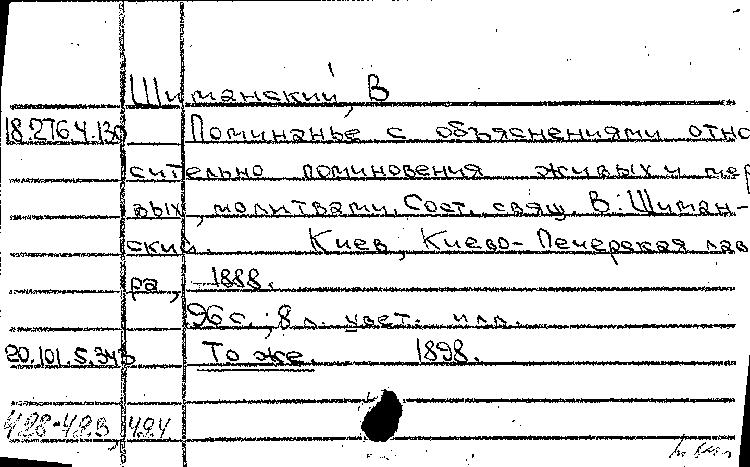 Шиманский, В
18.276.4.130 Поминанье с объяснениями отно
сительно поминовения живых и мер
вых, молитвами. Сост. свящ. В. Шиман-
ский. Киев, Киево-Печерская лав
ра, 1888.
96 с.; 8 л. цвет. илл.
20.101.5.343 То же. 1898.